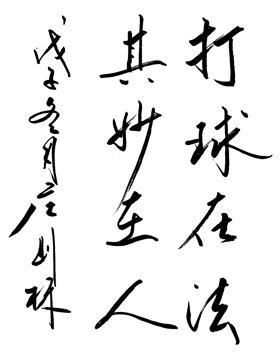 打球在法
其妙在人
戊子冬月庄则栋